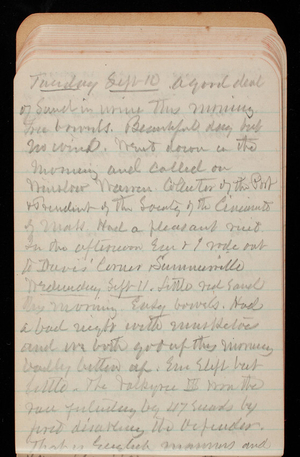 Tuesday Sept 10 A good deal
of Sand in urine this morning
Free bowels. Beautiful day but
no wind. Went down in the
morning and called on
Winslow Warren Collector of the Port
& President of the Society of the Cincinnati
of Mass. Had a pleasant visit.
In the afternoon Em & I rode out
to Davis' Corner & Summerville
Wednesday Sept 11. Little red Sand
this morning. Easy bowels. Had
a bad night with musketoes
and we both got up this morning
badly bitten up. Em Slept but
little. The Valkyrie III won the
race yesterday by 47 seconds by
first disabling the Defender.
That is English manners and